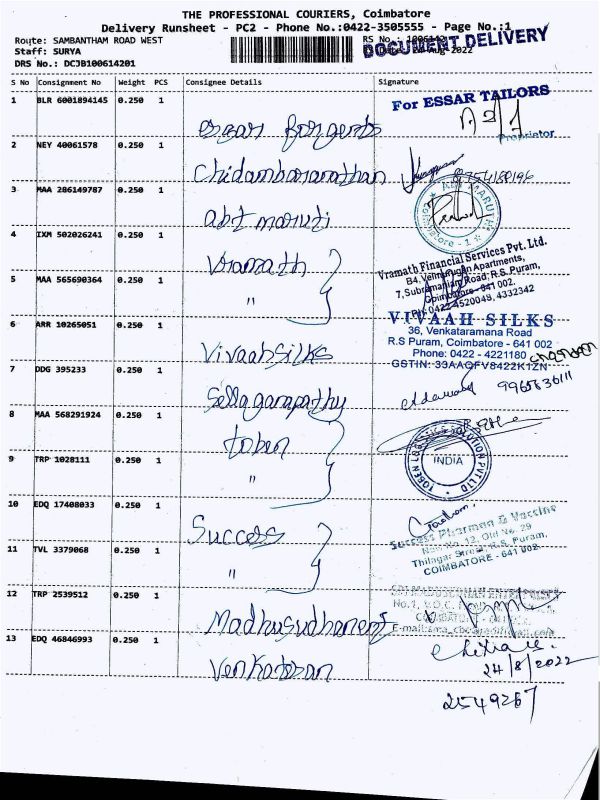 THE PROFESSIONAL COURIERS, Coimbatore
Delivery Runsheet - PC2 - Phone No.:0422-3505555 - Page No.:1
Route: SAMBANTHAM ROAD WEST
DOCUMENT DELIVERY
Staff: SURYA
DRS No.: DCJB100614201
S No Consignment No Weight PCS Consignee Details Signature
1 BLR 6001894145 0.250 1
For ESSAR TAILORS
Proprietor
2 NEY 40061578 0.250 1 Chidambaranathan
3 MAA 286149787 0.250 1 abt maruti
4 IXM 502026241 0.250 1 Vramath
Vramath Financial Services Pvt. Ltd.
B4, Velmurugan Apartments,
7, Subramaniam Road, R.S. Puram,
Coimbatore - 641 002.
PH: 0422-4520049, 4332342
5 MAA 565690364 0.250 1 "
VIVAAH SILKS
36, Venkataramana Road
R.S Puram, Coimbatore - 641 002
Phone: 0422 - 4221180
GSTIN: 33AAQFV8422K1ZN
6 ARR 10265051 0.250 1 Vivaahsilks
7 DDG 395233 0.250 1
8 MAA 568291924 0.250 1 toben
INDIA
9 TRP 1028111 0.250 1 "
10 EDQ 17408033 0.250 1 Success
Success Pharman & Vaccine
Thilagar Street, R.S. Puram,
COIMBATORE - 641 002.
11 TVL 3379068 0.250 1 "
12 TRP 2539512 0.250 1
13 EDQ 46846993 0.250 1
24/8/2022
2549267